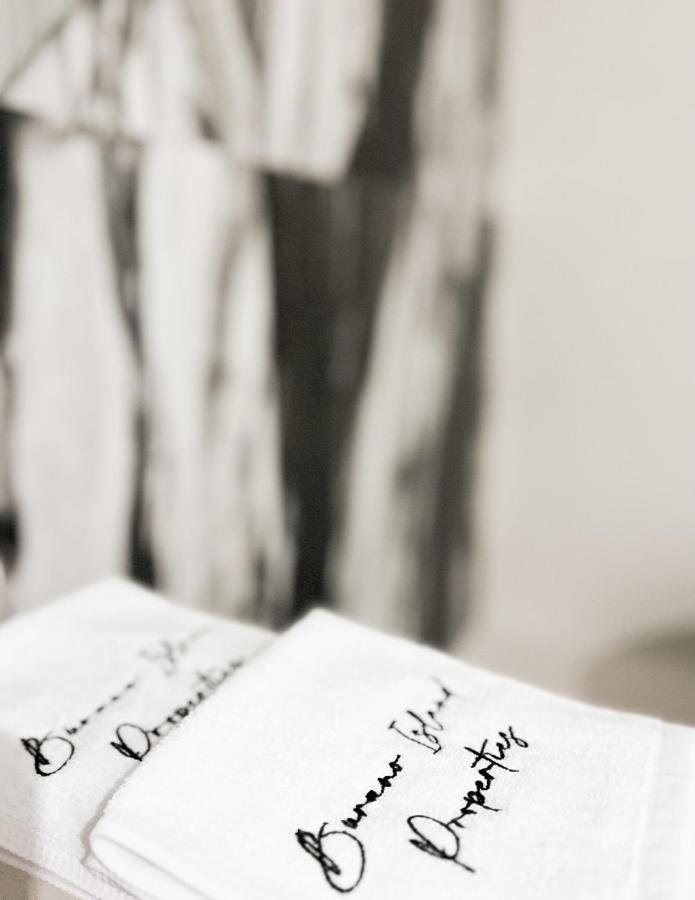 Burano Island
Properties
Burano Island
Properties